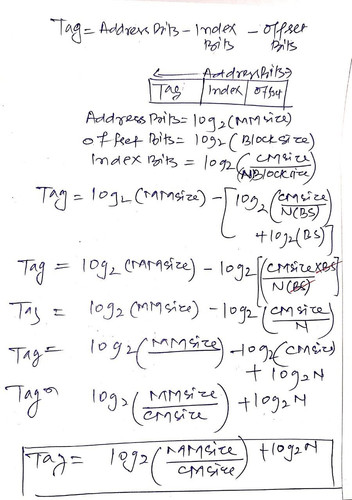 Tag = Address Bits - Index Bits - Offset Bits
← Address Bits →
Tag | Index | Offset
Address Bits = log2 (MM size)
Offset Bits = log2 (Block size)
Index Bits = log2 (CM size / N Block size)
Tag = log2 (MM size) - [log2 (CM size / N(BS))
+ log2 (BS)]
Tag = log2 (MM size) - log2 [(CM size × BS / N(BS))]
Tag = log2 (MM size) - log2 (CM size / N)
Tag = log2 (MM size) - log2 (CM size)
+ log2 N
Tag = log2 (MM size / CM size) + log2 N
Tag = log2 (MM size / CM size) + log2 N